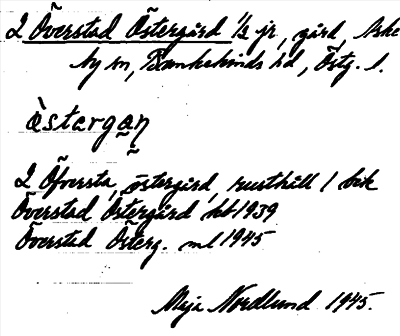 2 Överstad Östergård 1/2 jr, gård, Aske
by sn, Bankekinds hd, Östg. l.
östergan
2 Öfversta, östergård, rusthåll 1 bek
Överstad Östergård kb 1939
Överstad Österg. ml 1945
Maja Nordlund 1945.